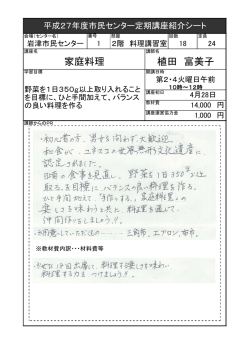 平成27年度市民センター定期講座紹介シート
会場(センター名) 番号 部屋 回数 定員
岩津市民センター 1 2階 料理講習室 18 24
講座名 講師名
家庭料理 植田 富美子
学習目標 開講日時
野菜を1日350g以上取り入れること
を目標に、ひと手間加えて、バランス
の良い料理を作る
第2・4火曜日午前
10時~12時
講座初日
4月28日
教材費
14,000 円
講座運営協力金
1,000 円
講師からのPR
・初心者の方、男女を問わず大歓迎
和食が、ユネスコの世界無形文化遺産に
認定されました。
日頃の食事を見直し、野菜を1日350g以上
取る、を目標に、バランスの良い料理を作る。
ひと手間加えて、「手作り」する、家庭料理の
楽しさを味わうと共に、料理を通して、
仲間作りをしましょう。
※用意していただくもの 三角巾、エプロン、布巾。
※教材費内訳・・・材料費等
料理する力をつけましょう!!